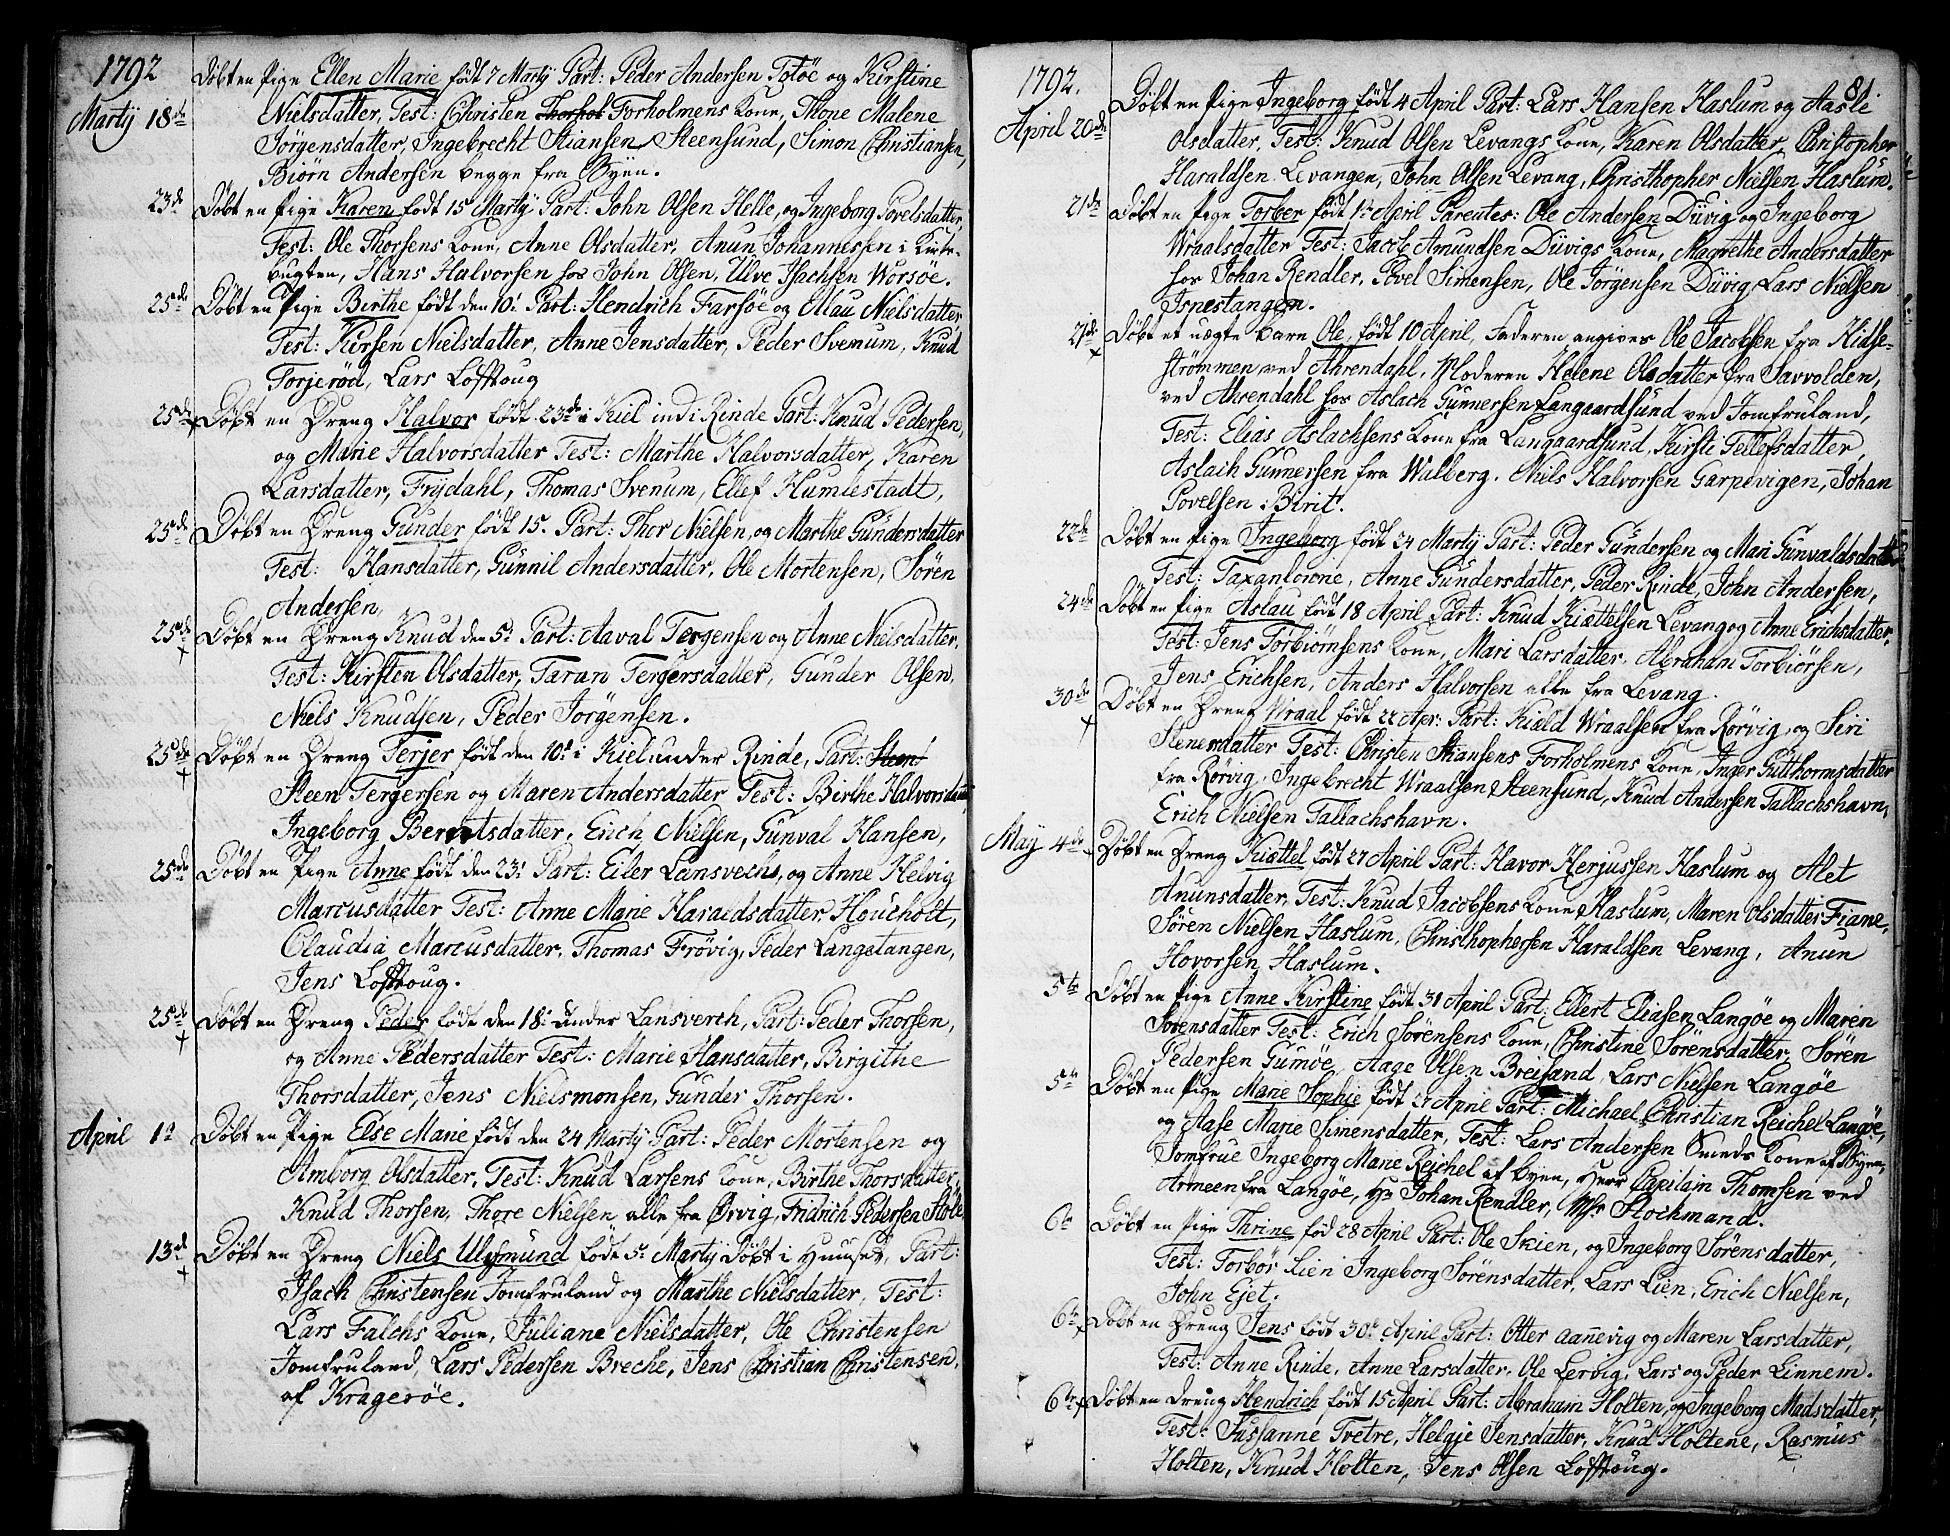 1792
Döbt en Pige Ellen Marie född 7 Martÿ Part: Peder Andersen Totöe og Kirstine
Martÿ 18de Nielsdatter, Test: Christen Forholmens Kone, Thone Malene
Jörgensdatter, Ingebrecht Stiansen Steensund, Simon Christiansen,
Biörn Andersen begge fra Byen.
23de Döbt en Pige Karen född 15 Martÿ Part: John Olsen Helle, og Ingeborg Povelsdatter,
Test: Ole Thorsens Kone, Anne Olsdatter, Anun Johannesen i Kirke-
bugten, Hans Halvorsen hos John Olsen, Ulve Isachsen Worsöe.
25de Döbt en Pige Berthe född den 10. Part: Hendrich Farsöe og Ellau Nielsdatter,
Test: Kirsen Nielsdatter, Anne Jensdatter, Peder Svenum, Knud
Torjeröd, Lars Lofftoug
25de Döbt en Dreng Halvor född 23de i Kiel ind i Rinde Part: Knud Pedersen,
og Marie Halvorsdatter Test: Marthe Halvorsdatter, Karen
Larsdatter, Frÿdahl, Thomas Svenum, Ellef Humlestadt,
25de Döbt en Dreng Gunder född 15. Part: Thor Nielsen, og Marthe Gundersdatter
Test: Hansdatter, Gunnil Andersdatter, Ole Mortensen, Sören
Andersen,
25de Döbt en Dreng Knud den 5. Part: Aaval Tergensen og Anne Nielsdatter,
Test: Kirsten Olsdatter, Taran Tergersdatter, Gunder Olsen,
Niels Knudsen, Peder Jörgensen.
25de Döbt en Dreng Terjer född den 10. i Kiel under Rinde, Part:
Steen Tergersen og Maren Andersdatter Test: Birthe Halvorsdatter
Ingeborg Berntsdatter, Erich Nielsen, Gunval Hansen,
25de Döbt en Pige Anne född den 23. Part: Eiler Lansvechs, og Anne Helvig
Marcusdatter Test: Anne Marie Haraldsdatter Houcholt,
Claudia Marcusdatter, Thomas Frövig, Peder Langetangen,
Jens Lofftoug.
25de Döbt en Dreng Peder född den 18. under Lansverch, Part: Peder Thorsen,
og Anne Pedersdatter Test: Marie Hansdatter, Birgithe
Thorsdatter, Jens Nielsmonsen, Gunder Thorsen.
April 1de Döbt en Pige Else Marie född den 24 Martÿ Part: Peder Mortensen og
Amborg Olsdatter, Test: Knud Larsens Kone, Birthe Thorsdatter,
Knud Thorsen, Thore Nielsen alle fra Ørvig, Fridrich Pedersen Stöle
13de Döbt en Dreng Niels Ulysmund född 3. Martÿ Döbt i Huuset, Part:
Isach Christensen Jomfruland og Marthe Nielsdatter, Test:
Lars Falchs Kone, Juliane Nielsdatter, Ole Christensen
Jomfruland, Lars Pedersen Breche, Jens Christian Christensen,
af Krageröe.
1792. 81.
Döbt en Pige Ingeborg född 4 April Part: Lars Hansen Haslum og Aasle
April 20de Olsdatter, Test: Knud Olsen Levangs Kone, Karen Olsdatter, Christopher
Haraldsen Levangen, John Olsen Levang, Christhopher Nielsen Haslum.
21de Döbt en Pige Torber född 1. April Parentes: Ole Andersen Düvig og Ingeborg
Wraalsdatter Test: Jacob Amundsen Düvigs Kone, Magrethe Andersdatter
hos Johan Rendler, Povel Simensen, Ole Jörgensen Düvig, Lars Nielsen
Ispestangen.
21de Döbt et uægte Barn Ole, född 10 April, Faderen angives Ole Jacobsen fra Kidse-
strömmen ved Ahrendahl, Moderen Helene Olsdatter fra Savvolden,
ved Ahrendahl hos Aslach Gunnersen Langaardsund ved Jomfruland,
Test: Elias Aslachsens Kone fra Langaardsund, Kirsti Tellefsdatter,
Aslach Gunnersen fra Walberg. Niels Halvorsen Garpevigen, Johan
Povelsen: Birit.
22de Döbt en Pige Ingeborg född 24 Martÿ Part: Peder Gundersen og Mari Gunvaldsdatter
Test: , Anne Gundersdatter, Peder Rinde, John Andersen,
24de Döbt en Pige Aslau född 18 April Part: Knud Kisttelsen Levang og Anne Erichsdatter,
Test: Jens Torbiörnsens Kone, Mari Larsdatter, Abraham Torbiörsen,
Jens Erichsen, Anders Halvorsen alle fra Levang.
30de Döbt en Dreng Wraal född 22 Apr: Part: Kield Wraalsen fra Rörvig, og Siri
Stenersdatter Test: Christen Stiansens Forholmens Kone, Inger Gutthormsdatter
fra Rörvig, Ingebrecht Wraalsen Steensund, Knud Andersen Tallachshavn,
Erich Nielsen Tallachshavn.
Maÿ 4de Döbt en Dreng Kisttel född 27 April Part: Havor Herjussen Haslum og Alet
Anunsdatter, Test: Knud Jacobsens Kone Haslum, Maren Olsdatter Fiane,
Sören Nielsen Haslum, Christhophersen Haraldsen Levang, Anun
Hovorsen Haslum.
5te Döbt en Pige Anne Kirstine född 31 April Part: Ellert Eliasen Langöe og Maren
Sörensdatter Test: Erich Sörensens Kone, Christine Sörensdatter, Sören
Pedersen Gumöe, Aage Olsen Breisand, Lars Nielsen Langöe
5te Döbt en Pige Marie Sophie född 27 April Part: Michael Christian Reichel Langöe,
og Aase Marie Simensdatter, Test: Lars Andersen Smeds Kone af Byen,
Jomfrue Ingeborg Marie Reichel af Byen, Herr Capitain Thomsen ved
Armeen fra Langöe, Hr Johan Rendler, Mr Stochmand.
6te Döbt en Pige Thrine föd 28 April Part: Ole Skien, og Ingeborg Sörensdatter,
Test: Torbör Lien Ingeborg Sörensdatter, Lars Lien, Erich Nielsen,
John Ejet.
6te Döbt en Dreng Jens född 30. April Part: Otter Aanevig og Maren Larsdatter,
Test: Anne Rinde, Anne Larsdatter, Ole Lervig, Lars og Peder Linnem.
6te Döbt en Dreng Hendrich född 15 April Part: Abraham Holten, og Ingeborg Madsdatter,
Test: Sussanne Tvetre, Helgie Jensdatter, Knud Holtene, Rasmus
Holten, Knud Holten, Jens Olsen Lofftoug.